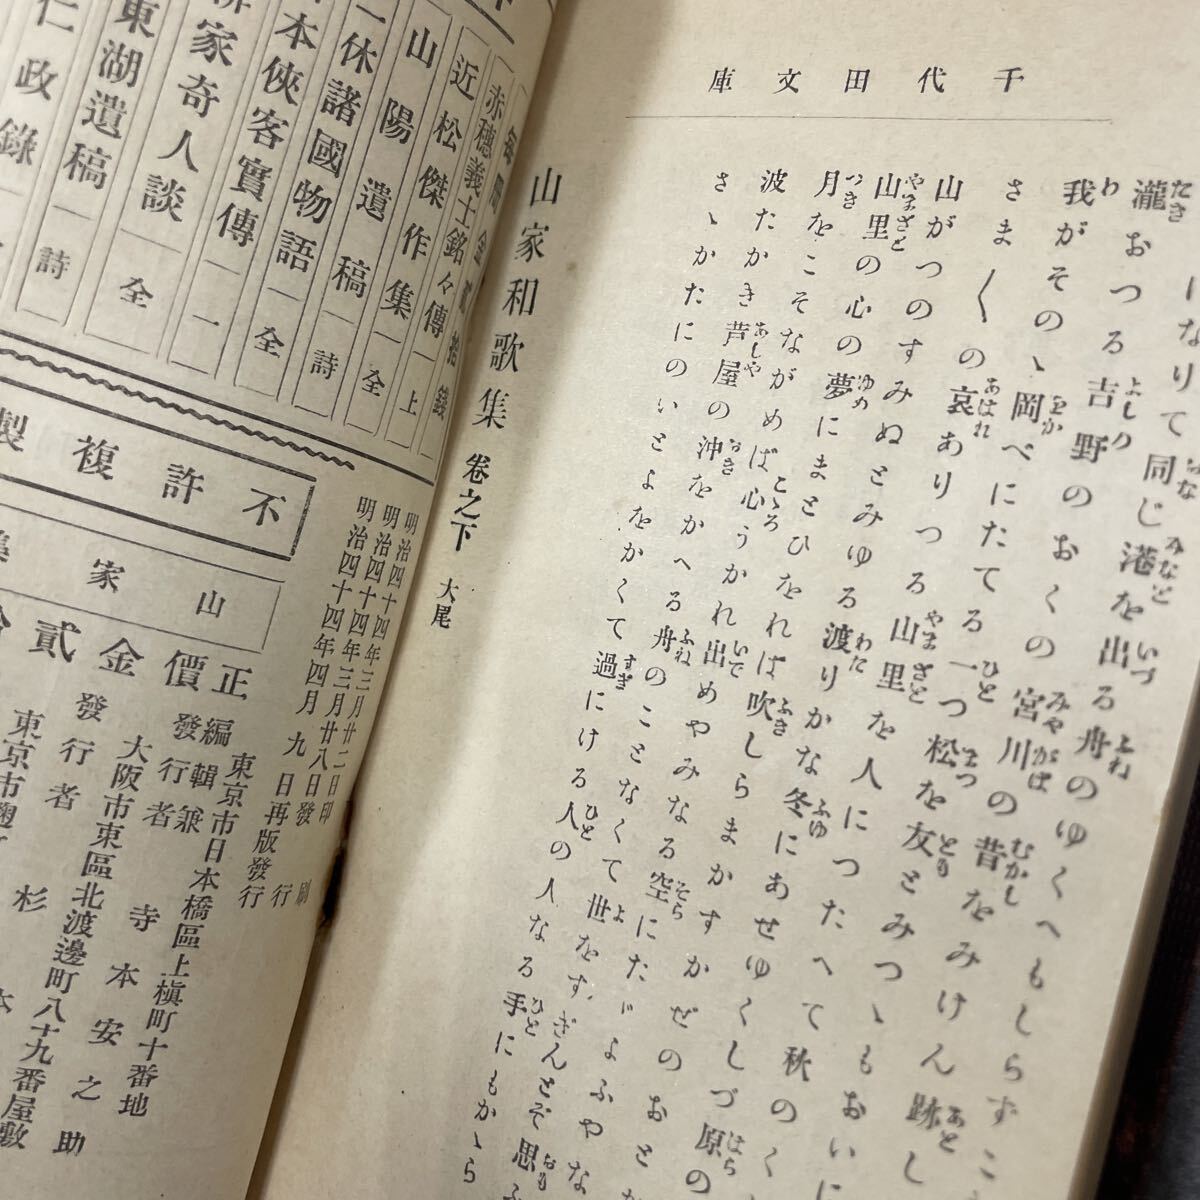 千代田文庫
一なりて同じ港を出る舟のゆくへもしらずこ
瀧おつる吉野のおくの宮川の昔をみけん跡し
我がそのゝ岡べにたてる一つ松を友とみつゝもおいに
さま〲の哀ありつる山里を人につたへて秋のく
山がつのすみぬとみゆる渡りかな冬にあせゆくしづ原の
山里の心の夢にまとひをれば吹しらまかすかぜのおとか
月をこそながめば心うかれ出めやみなる空にたゞよふやな
波たかき芦屋の沖をかへる舟のことなくて世をすぎんとぞ思ふ
さゝかたにのいとよをかくて過にける人の人なる手にもかゝら
山家和歌集 卷之下 大尾
赤穗義士銘々傳 上
近松傑作集 全
山陽遺稿 詩
一休諸國物語 全
本俠客實傳 一
家奇人談 全
東湖遺稿 詩
仁政錄
不許複製
明治四十四年三月廿二日印刷
明治四十四年三月廿八日發行
明治四十四年四月九日再版發行
山家集
正價金貳拾
東京市日本橋區上槇町十番地
編輯兼發行者 寺本安之助
大阪市東區北渡邊町八十九番屋敷
發行者 杉本
東京市麴町